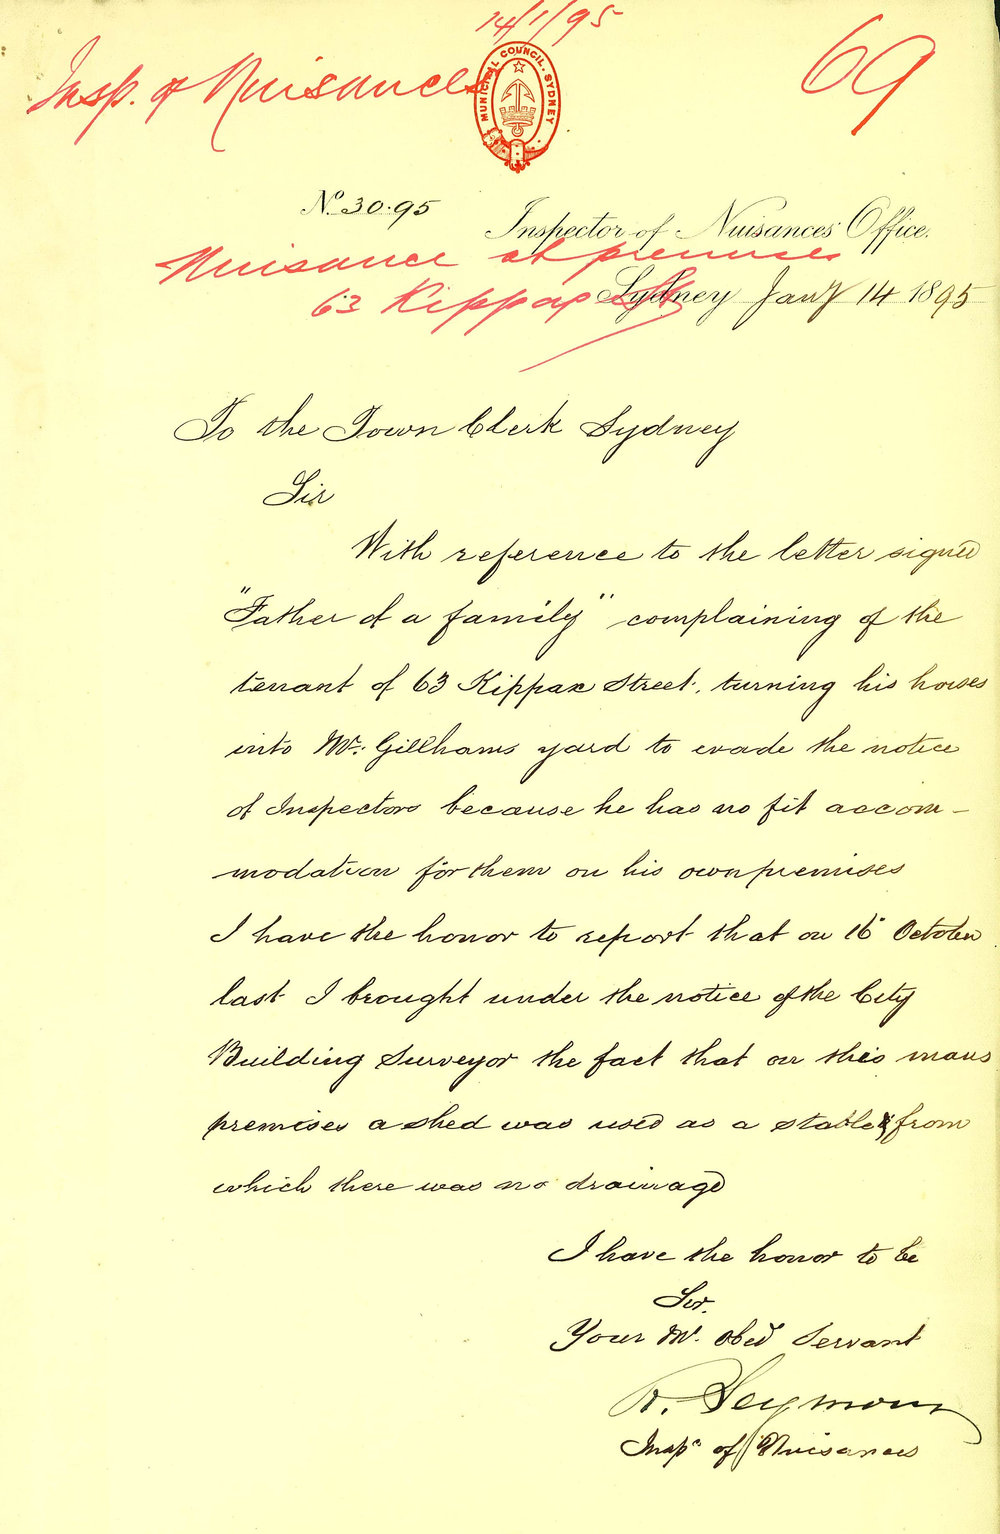 14/1/95
Insp. of Nuisances
69
MUNICIPAL COUNCIL. SYDNEY
No. 30.95
Inspector of Nuisances Office.
Nuisance at premises
63 Kippax St
Sydney Jany 14 1895
To the Town Clerk Sydney
Sir
With reference to the letter signed
"Father of a family" complaining of the
tenant of 63 Kippax Street, turning his horses
into Mr. Gillhams yard to evade the notice
of Inspectors because he has no fit accom-
modation for them on his own premises
I have the honor to report that on 16 October
last I brought under the notice of the City
Building Surveyor the fact that on this mans
premises a shed was used as a stable & from
which there was no drainage
I have the honor to be
Sir.
Your Mt. Obed Servant
R. Seymour
Inspr of Nuisances